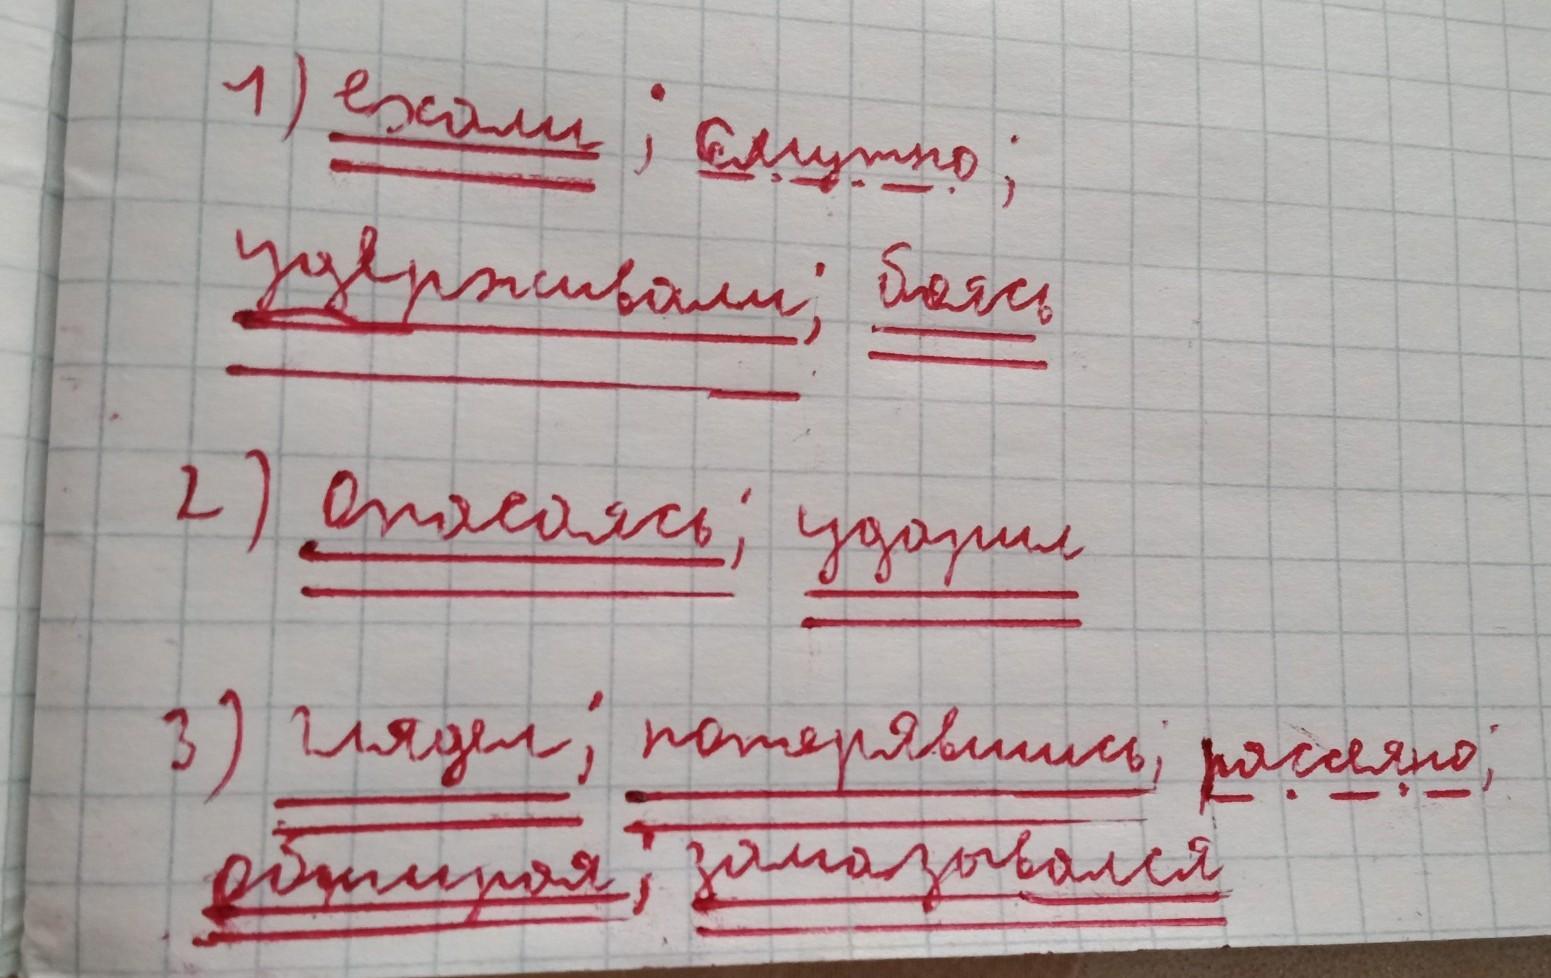 1) ехали; смутно;
удерживали; боясь
2) Опасаясь; ударил
3) глядел; потерявшись; рассеяно;
обтирая; замазывался